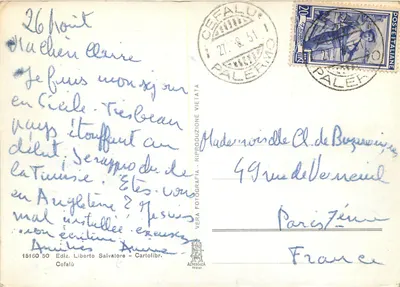 26 Août
Ma chère Claire
Je finis mon séjour
en Sicile. Très beau
pays étouffant au
début, se rapproche de
la Tunisie. Etes-vous
en Angleterre ? Je suis
mal installée excusez
mon écriture
Amitiés
CEFALU
27.8.51
PALERMO
POSTE ITALIANE
PALERMO
VERA FOTOGRAFIA - RIPRODUZIONE VIETATA
Mademoiselle Cl. de
49 rue de Verneuil
Paris 7ème
France
18460 50 Ediz. Liberto Salvatore - Cartolibr.
Cefalù